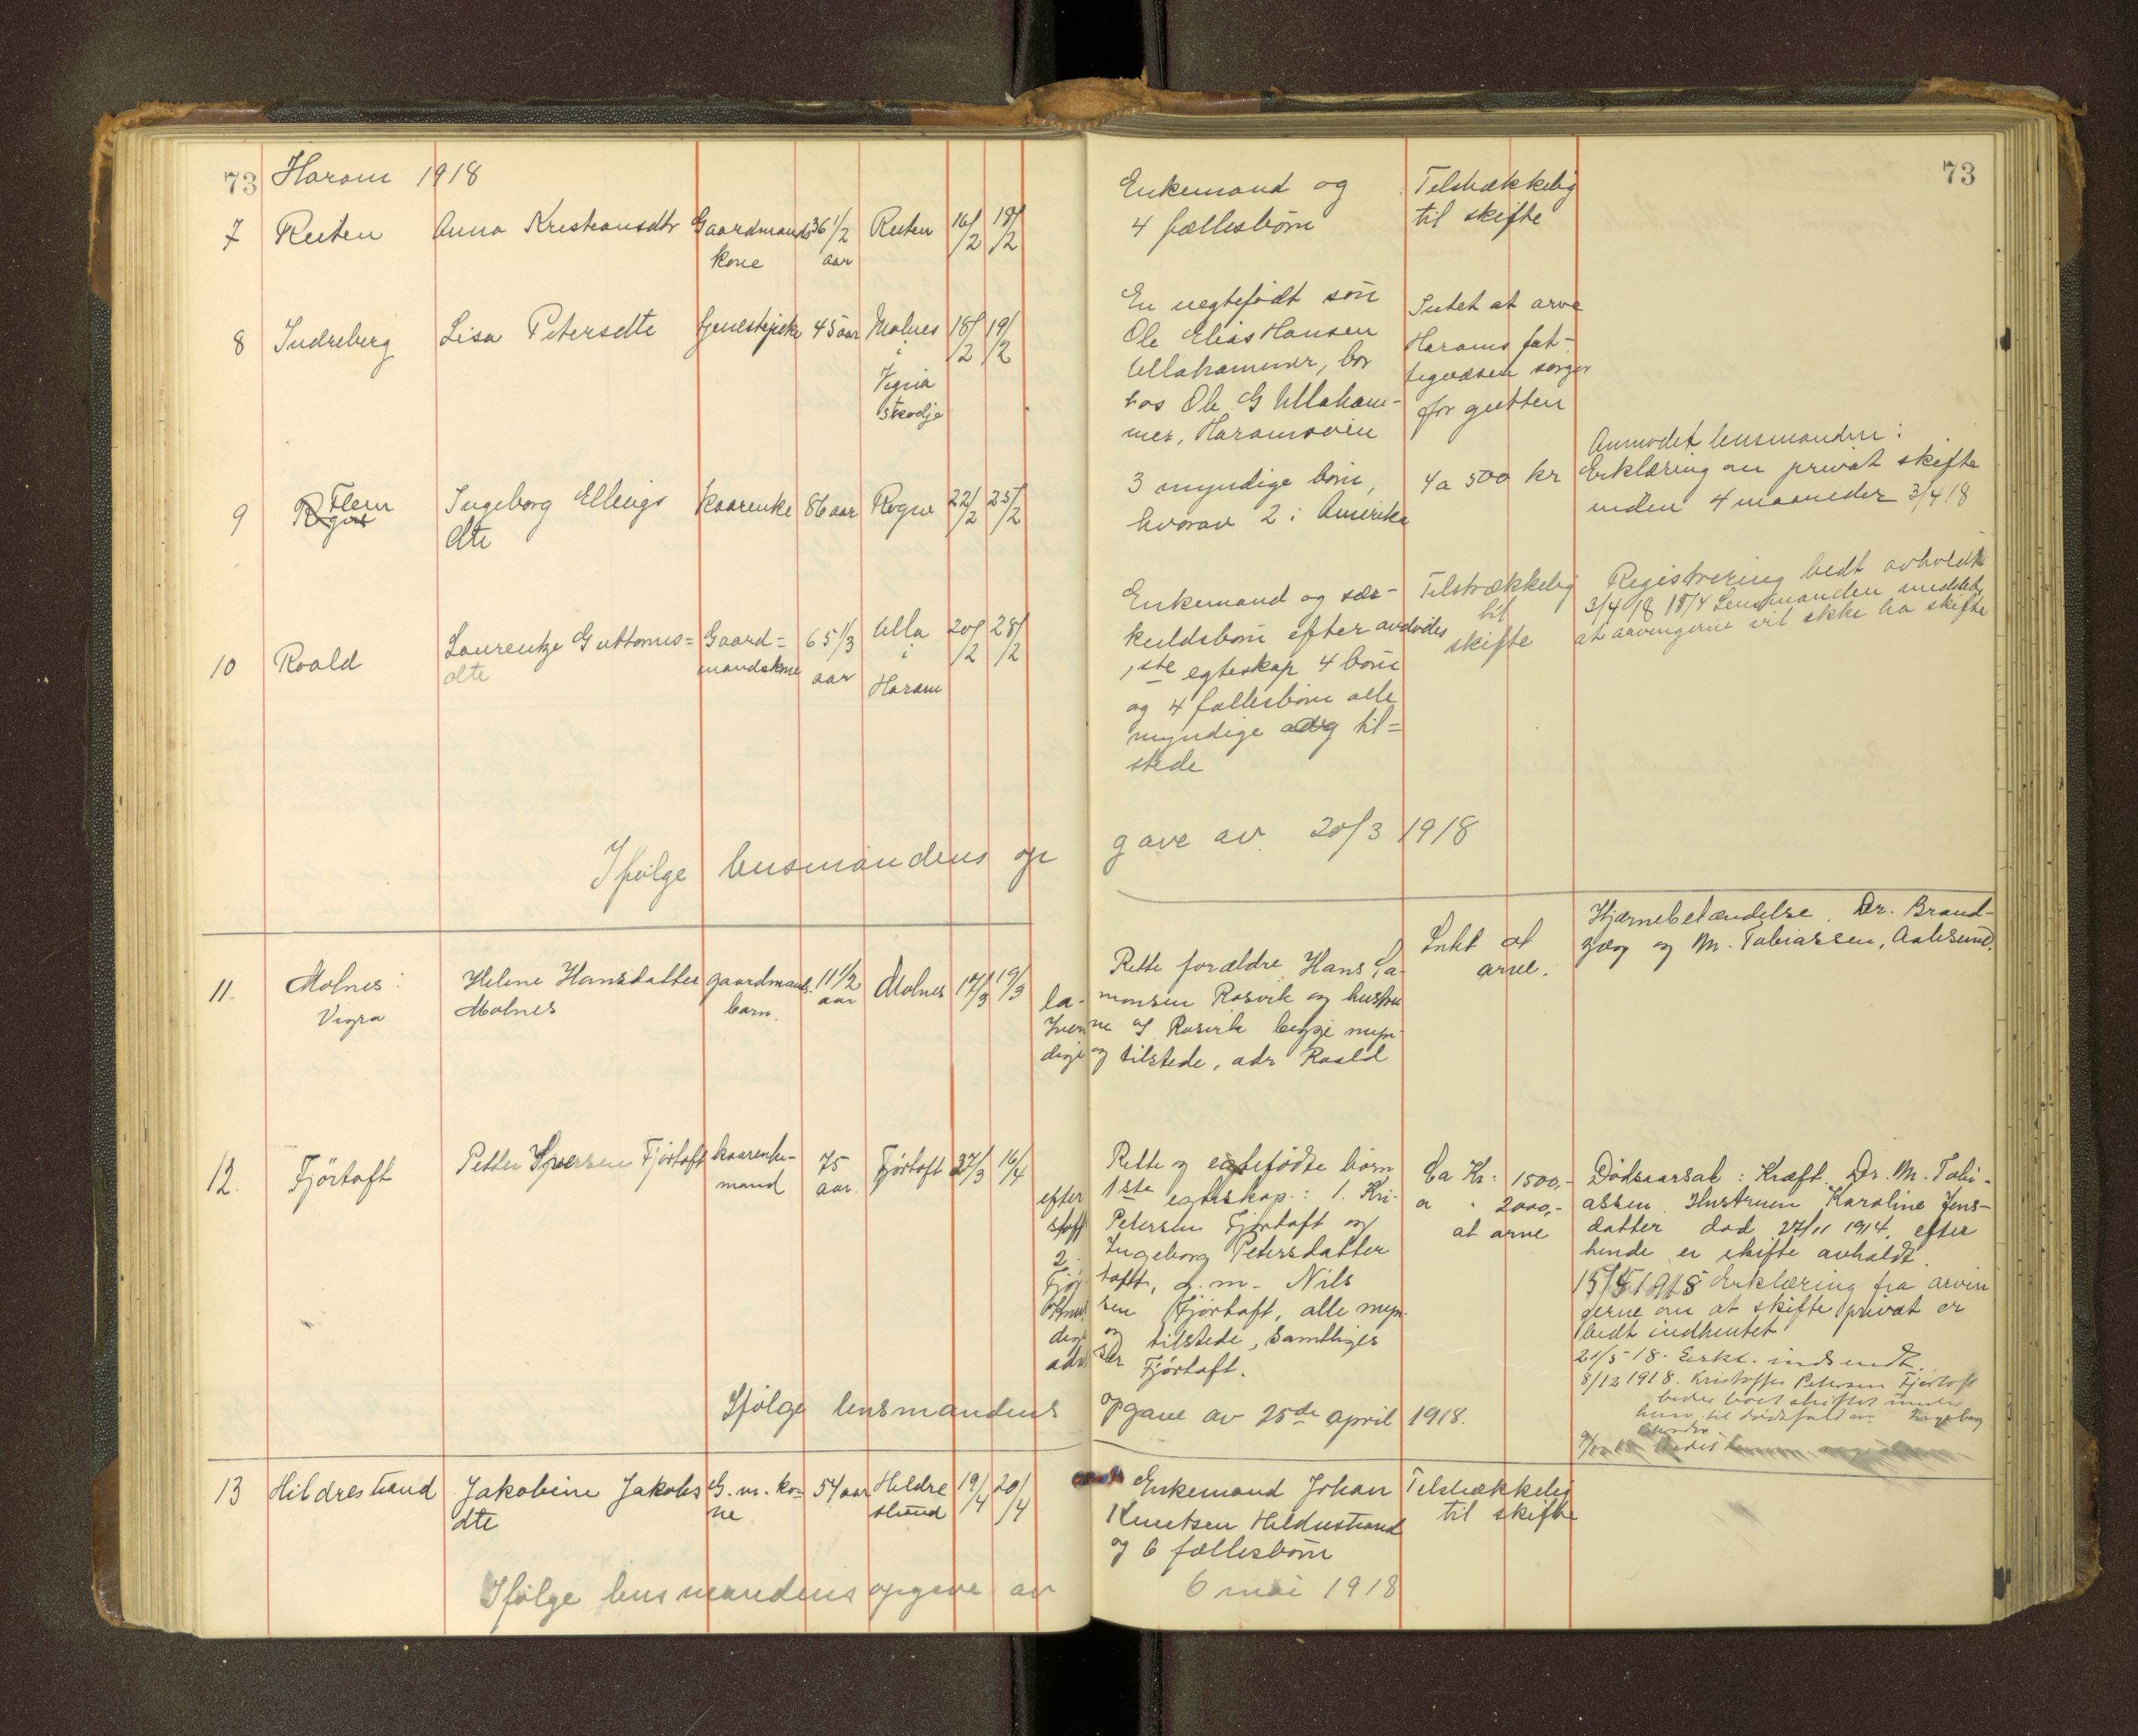 73 Haram 1918
73
7 Reiten Anna Kristiansdtr Gaardmands 36 1/2 Reiten 16/2 18/2 Enkemand og Tilstrækkelig
kone aar 4 fællesbörn til skifte
8 Indreberg Lisa Petersdte tjenestepike 45 aar Molnes 18/2 19/2 En uegtefödt sön Intet at arve
i Ole Elias Hansen Harams fat-
Vigra Ullahammer, bor tigvæsen sørger
Skodje hos Ole G Ullaham- for gutten
mer, Haramsöen
Anmodet lensmanden i
9 Flem Ingeborg Ellings kaarenke 86 aar Rogne 22/2 25/2 3 myndige börn, 4 a 500 kr Erklæring om privat skifte
Rogne dte hvorav 2 i Amerika inden 4 maaneder 3/4 18
10 Roald Laurentze Guttorms= Gaard= 65 1/3 Ulla 20/2 28/2 Enkemand og sær- Tilstrækkelig Registrering bedt avholdt
dte mandskone aar i kuldsbörn efter avdödes til 3/4 18 18/4 Lensmanden meddelt,
Haram 1ste egteskap 4 börn skifte at arvingerne vil ikke ha skifte
og 4 fællesbörn alle
myndige og til=
stede
Ifølge lensmandens opgave av 20/3 1918
11. Molnes i Helene Hansdatter gaardmands- 11 1/2 Molnes 17/3 19/3 Rette forældre Hans La- Intet at Hjærnebetændelse. Dr. Brand-
Vigra Molnes barn. aar la- monsen Rosvik og hustru arve. zæg og M. Tobiassen, Aalesund.
ne Rosvik begge myn-
dige og tilstede, adr Roald
12. Fjörtoft Petter Iversen Fjörtoft kaarenke- 75 Fjörtoft 27/3 16/4 Rette og egtefödte börn Ca Kr: 1500,- Dødsaarsak: Kræft. Dr. M. Tobi-
mand aar. efter 1ste egteskap: 1. Kri- a " 2000,- assen. Hustruen Karoline Jens-
stoff Petersen Fjörtoft og at arve datter død 27/11 1914, efter
2. Ingeborg Petersdatter hende er skifte avholdt.
Fjörtoft, g.m. Nils 15/5 1918 Erklæring fra arvin
Knudsen Fjörtoft, alle myn- gerne om at skifte privat er
dige og tilstede, samtliges bedt indhentet
adr Fjörtoft. 21/5 18. Erkl. indsendt.
8/12 1918. Kristoffer Petersen Fjertoft
beder boet skiftet under
til dödsfald Ingeborg
Ifölge lensmandens opgave av 25de april 1918.
13 Hildrestrand Jakobine Jakobs G.m. ko= 54 aar Hildre 19/4 20/4 Enkemand Johan Tilstrækkelig
dte ne strand Knutsen Hildrestrand til skifte
og 6 fællesbörn
Ifölge lensmandens opgave av 6 mai 1918